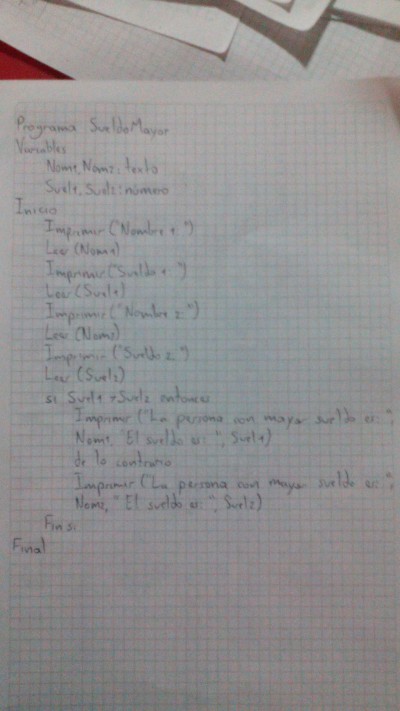 Programa SueldoMayor
Variables
Nom1, Nom2: texto
Suel1, Suel2: número
Inicio
Imprimir ("Nombre 1: ")
Leer (Nom1)
Imprimir ("Sueldo 1: ")
Leer (Suel1)
Imprimir ("Nombre 2: ")
Leer (Nom2)
Imprimir ("Sueldo 2: ")
Leer (Suel2)
si Suel1 > Suel2 entonces
Imprimir ("La persona con mayor sueldo es: ",
Nom1, "El sueldo es: ", Suel1)
de lo contrario
Imprimir ("La persona con mayor sueldo es: ",
Nom2, "El sueldo es: ", Suel2)
Fin si
Final